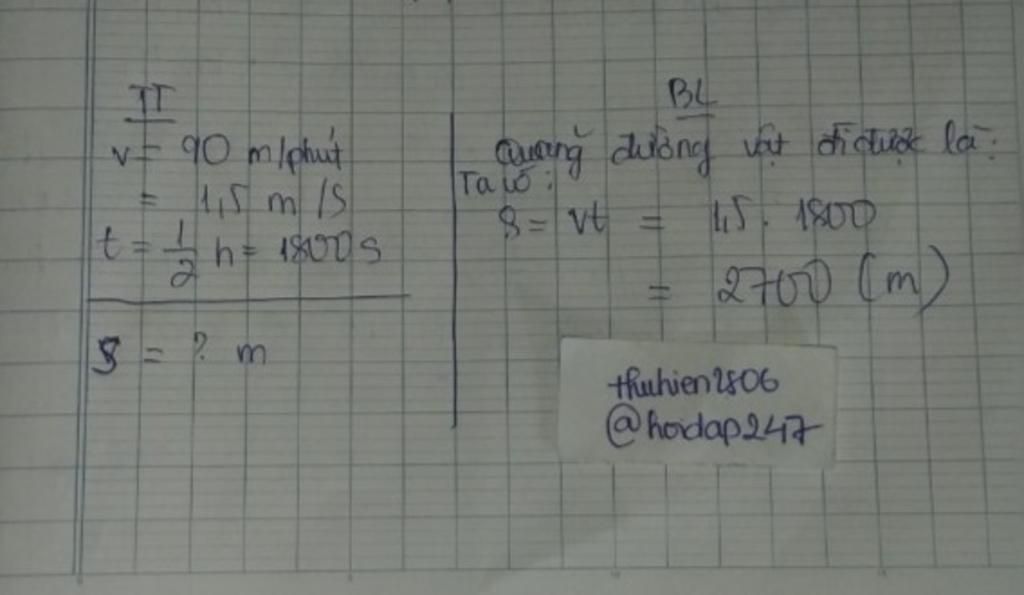 TT
v = 90 m/phút
= 1,5 m/s
t = 1/2 h = 1800 s
S = ? m
BL
Quãng đường vật đi được là:
Ta có:
S = vt = 1,5 . 1800
= 2700 (m)
thuhien2806
@hoidap247